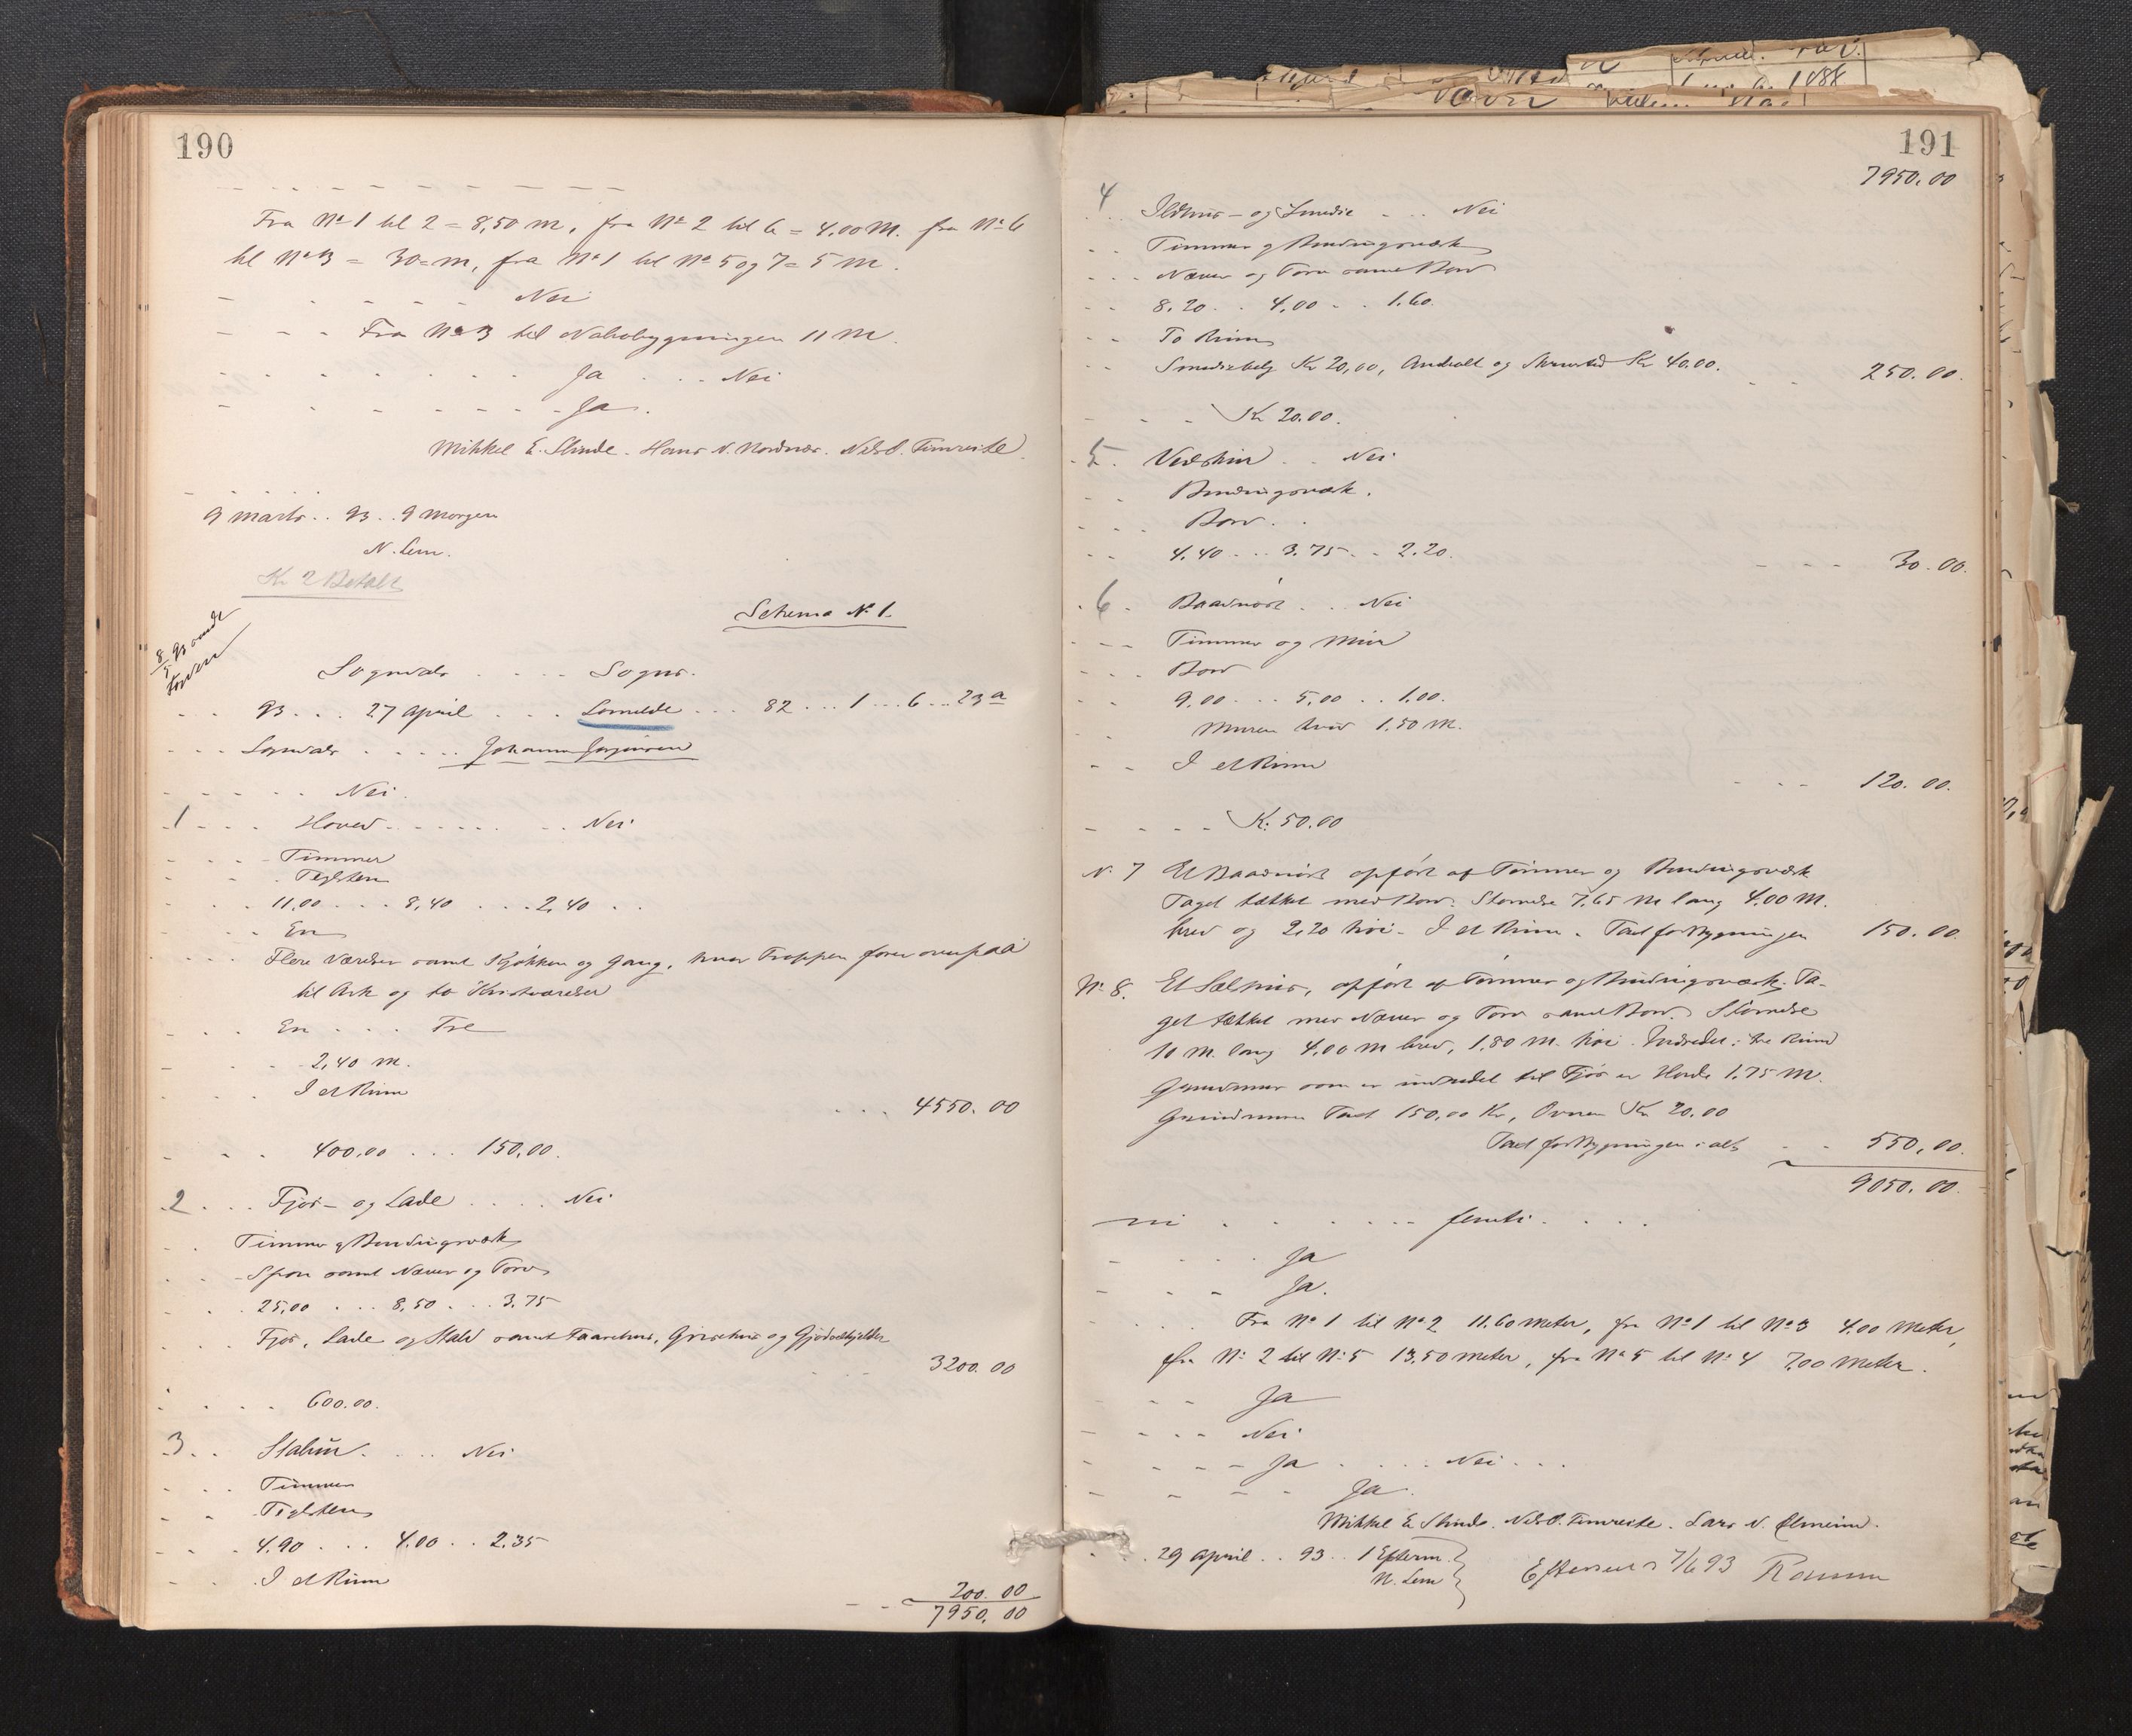 190
Fra No 1 til 2 = 8,50 m, fra No 2 til 6 = 4,00 M. fra No 6
til No 3 = 30 m, fra No 1 til No 5 og 7 = 5 M.
- - - - - Nei
- - - Fra No 3 til Nabobygningen 11 M.
- - - - - - Ja . . . Nei
- - - - - - - Ja.
Mikkel E. Slinde. Hans N. Nordnæs. Nils O. Timreite.
9 marts . . 93 . . 9 Morgen
N. Lem.
Kr 2 Betalt
Schema No 1.
8/5 93
Sogndals . . . . Sogns.
. . 93 . . . 27 april . . . Lomelde . . . 82 . . . 1 . . . 6 . . . 23 a
- - - Sogndals . . . . . Johannes Jørgensen
- - - - - Nei.
1 - - . Hoved - . . . . . . . Nei
- - - Timmer
- - . Teglsten
- - . 11,00 . . . 8,40 . . . 2,40 . .
- - - En
- - - Flere Værelser samt Kjøkken og Gang, hvor Trappen fører ovenpaa
til Ark og to Kvistværelser
- - . En . . . . Tre
- - - 2,40 m.
- - . I et Rum
. . . 4550.00
- - - 400,00 . . . 150,00.
2 . . . Fjøs - og Lade . . . . Nei
- . Timmer og Bindingsværk
- . Spon samt Næver og Torv
- . . 25,00 . . . 8,50 . . . 3.75
- . . Fjøs, Lade og Stald samt Faarehus, Grisehus og Gjødselkjelder
3200.00
. . . . 600.00.
3 . . Stabur . . . . Nei
- . . Timmer
- - . Teglsten
- - . 4.90 . . . 4.00 . . 2.35
- - . I et Rum
200.00
7950.00
191
7950.00
4 Ildhus - og Smedie - . . Nei
. . Timmer og Bindingsværk
. - . Næver og Torv samt Bord
- - 8.20 . . 4,00 . . 1.60.
- - To Rum
- - Smediebelg Kr 20,00, Ambolt og Skrusted Kr 40.00. - - 250.00.
- - - Kr 20.00.
5. Vedskur . . Nei
- - Bindingsværk.
- - . Bord . .
- - 4.40 . . . 3.75 . . 2.20.
- - - 30.00.
6. Baadnøst . . Nei
- - - Timmer og Mur
- - . Bord
- - 9.00 . . . 5,00 . . 1.00.
- - Muren hvid 1.50 M.
- - I et Rum
- - - 120.00.
- - - - Kr. 50.00
N. 7 Et Baadnøst opført af Tømmer og Bindingsværk
Taget tækket med Bord. Størrelse 7.65 M lang 4.00 M.
bred og 2,20 høi - I et Rum. Taxt for Bygningen 150.00
No 8. Et Sælshus, opført af Tømmer og Bindingsværk. Ta-
get tækket med Næver og Torv samt Bord. Størrelse
10 M. lang 4.00 M bred, 1,80 M. høi. Indredet i tre Rum
Grundmur som er indredet til Fjøs er Høide 1.75 M.
Grundmuren Taxt 150,00 Kr, Ovnen Kr 20.00
Taxt for Bygningen i alt - - 550,00.
9050.00.
ni . . . . . . . femti . . . .
- - - . Ja
- - - Ja.
. . . Fra No 1 til No 2 11.60 meter, fra No 1 til No 3 4.00 meter,
fra No 2 til No 5 13,50 meter, fra No 5 til No 4 7.00 meter.
- - Ja
- - - - Nei
- - - - Ja . . . . Nei . . .
- - - - - Ja.
Mikkel E Slinde. Nils O. Timreite. Lars N.
29 april . . 93 . . 1 Efterm.
N. Lem
Efterseet 7/6 93